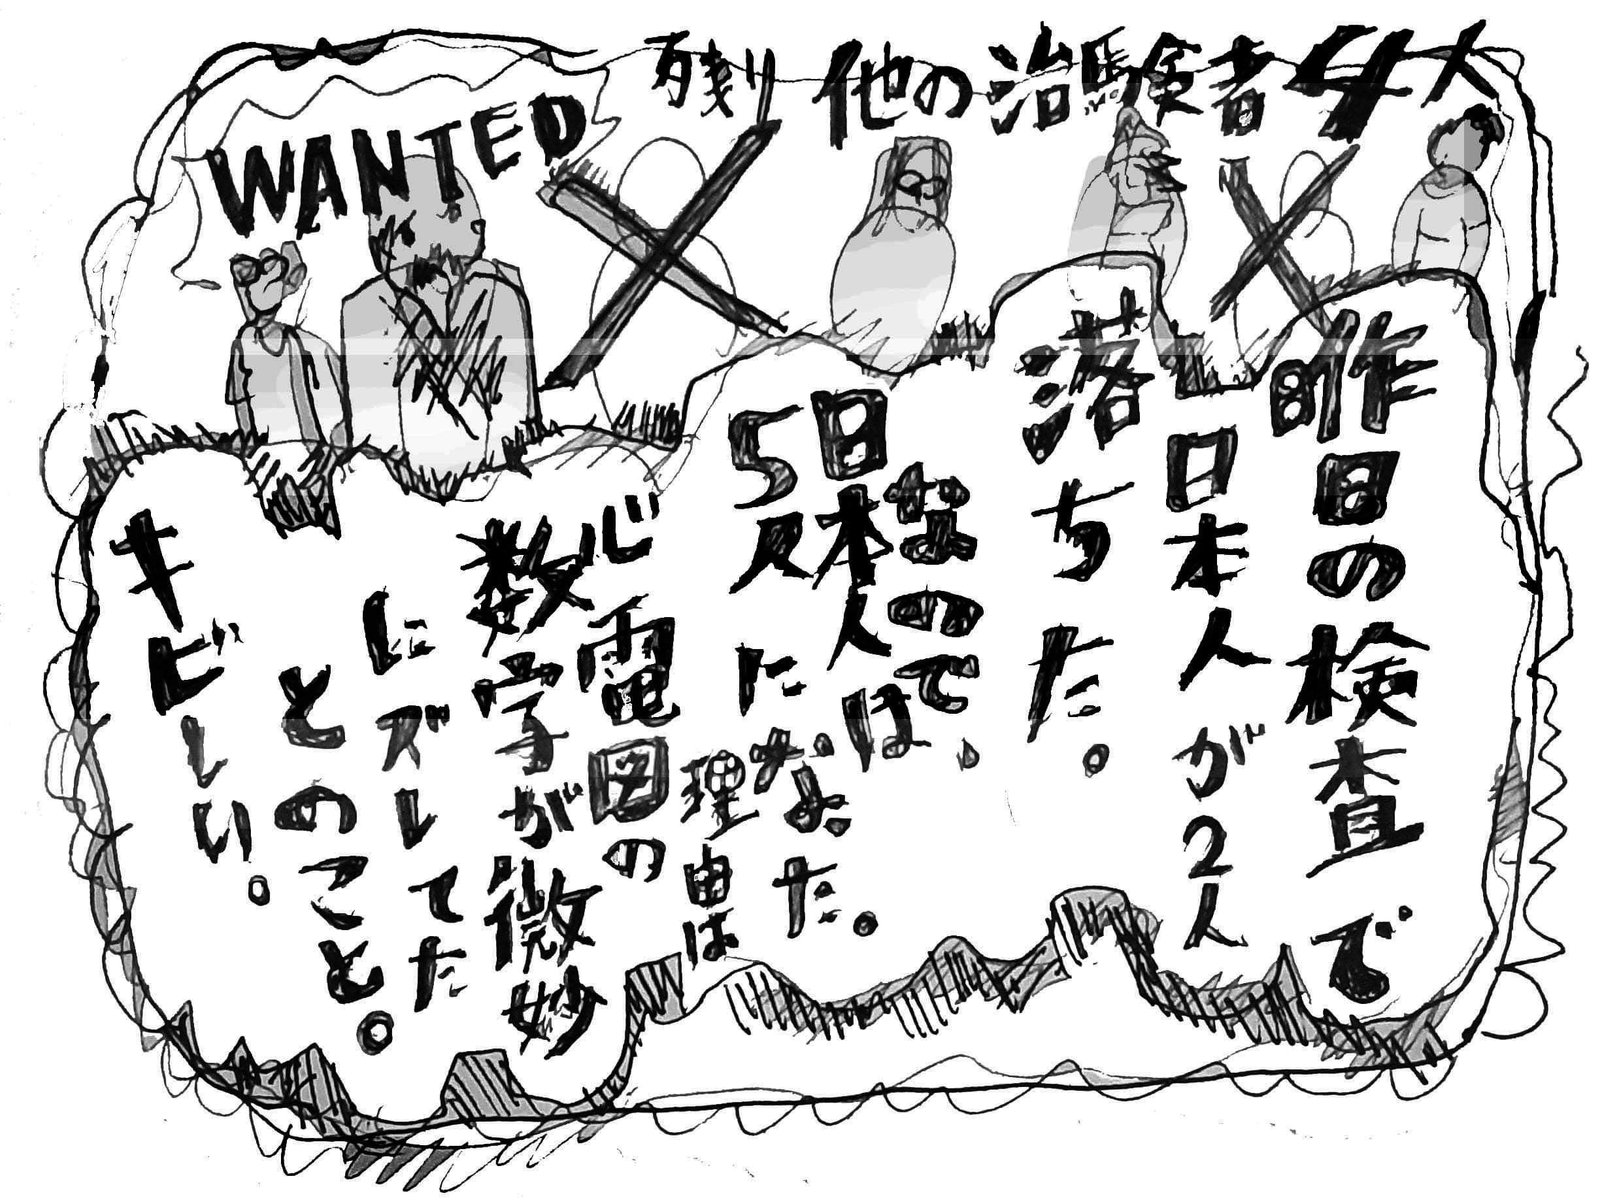 WANTED
残り他の治験者4人
昨日の検査で
日本人が2人
落ちた。
なので、
日本人は
5人
になった。
理由は
心電図の
数字が微妙
にズレてた
とのこと。
キビしい。